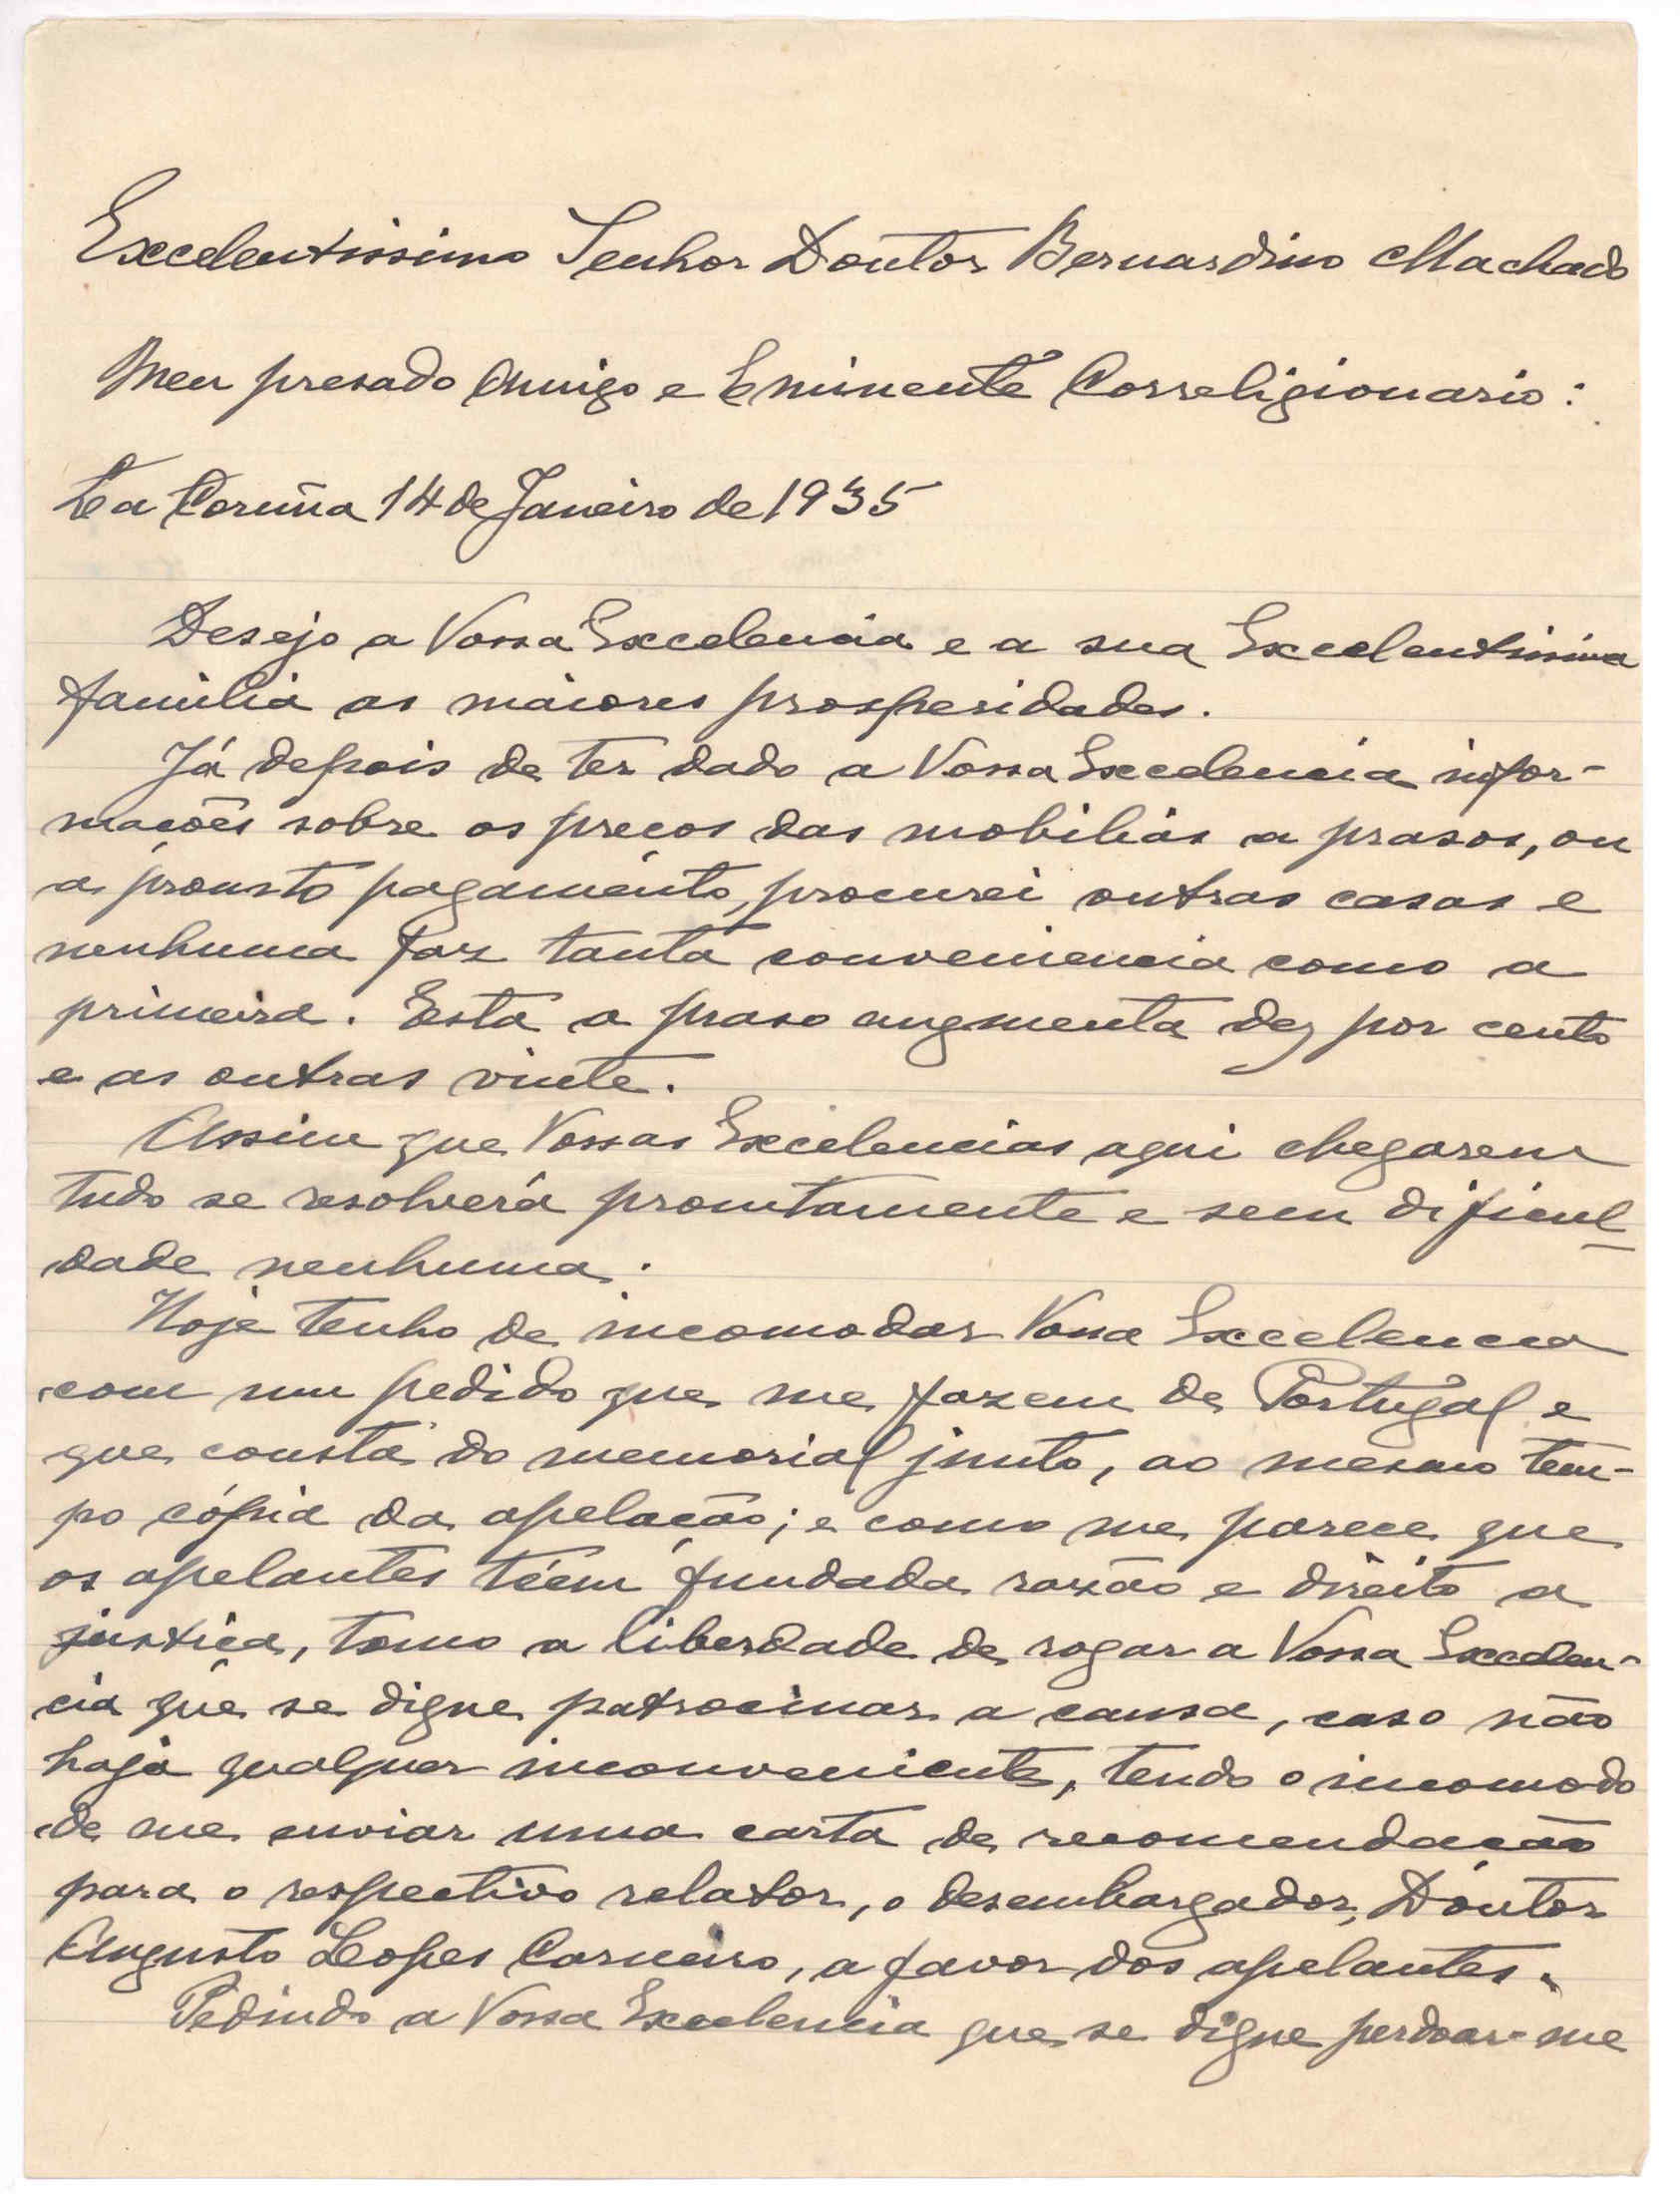 Excelentissimo Senhor Doutor Bernardino Machado
Meu presado Amigo e Eminente Correligionario:
La Coruña 14 de Janeiro de 1935
Desejo a Vossa Excelencia e a sua Excelentissima
familia as maiores prosperidades.
Já depois de ter dado a Vossa Excelencia infor-
mações sobre os preços das mobilias a prasos, ou
a pronto pagamento, procurei outras casas e
nenhuma faz tanta conveniencia como a
primeira. Esta a praso augmenta dez por cento
e as outras vinte.
Assim que Vossas Excelencias aqui chegarem
tudo se resolverá prontamente e sem dificul-
dade nenhuma.
Hoje tenho de incomodar Vossa Excelencia
com um pedido que me fazem de Portugal e
que consta do memorial junto, ao mesmo tem-
po cópia da apelação; e como me parece que
os apelantes téem fundada razão e direito a
justiça, tomo a liberdade de rogar a Vossa Excelen-
cia que se digne patrocinar a causa, caso não
haja qualquer inconveniente, tendo o incomodo
de me enviar uma carta de recomendação
para o respectivo relator, o desembargador, Doutor
Augusto Lopes Carneiro, a favor dos apelantes.
Pedindo a Vossa Excelencia que se digne perdoar-me